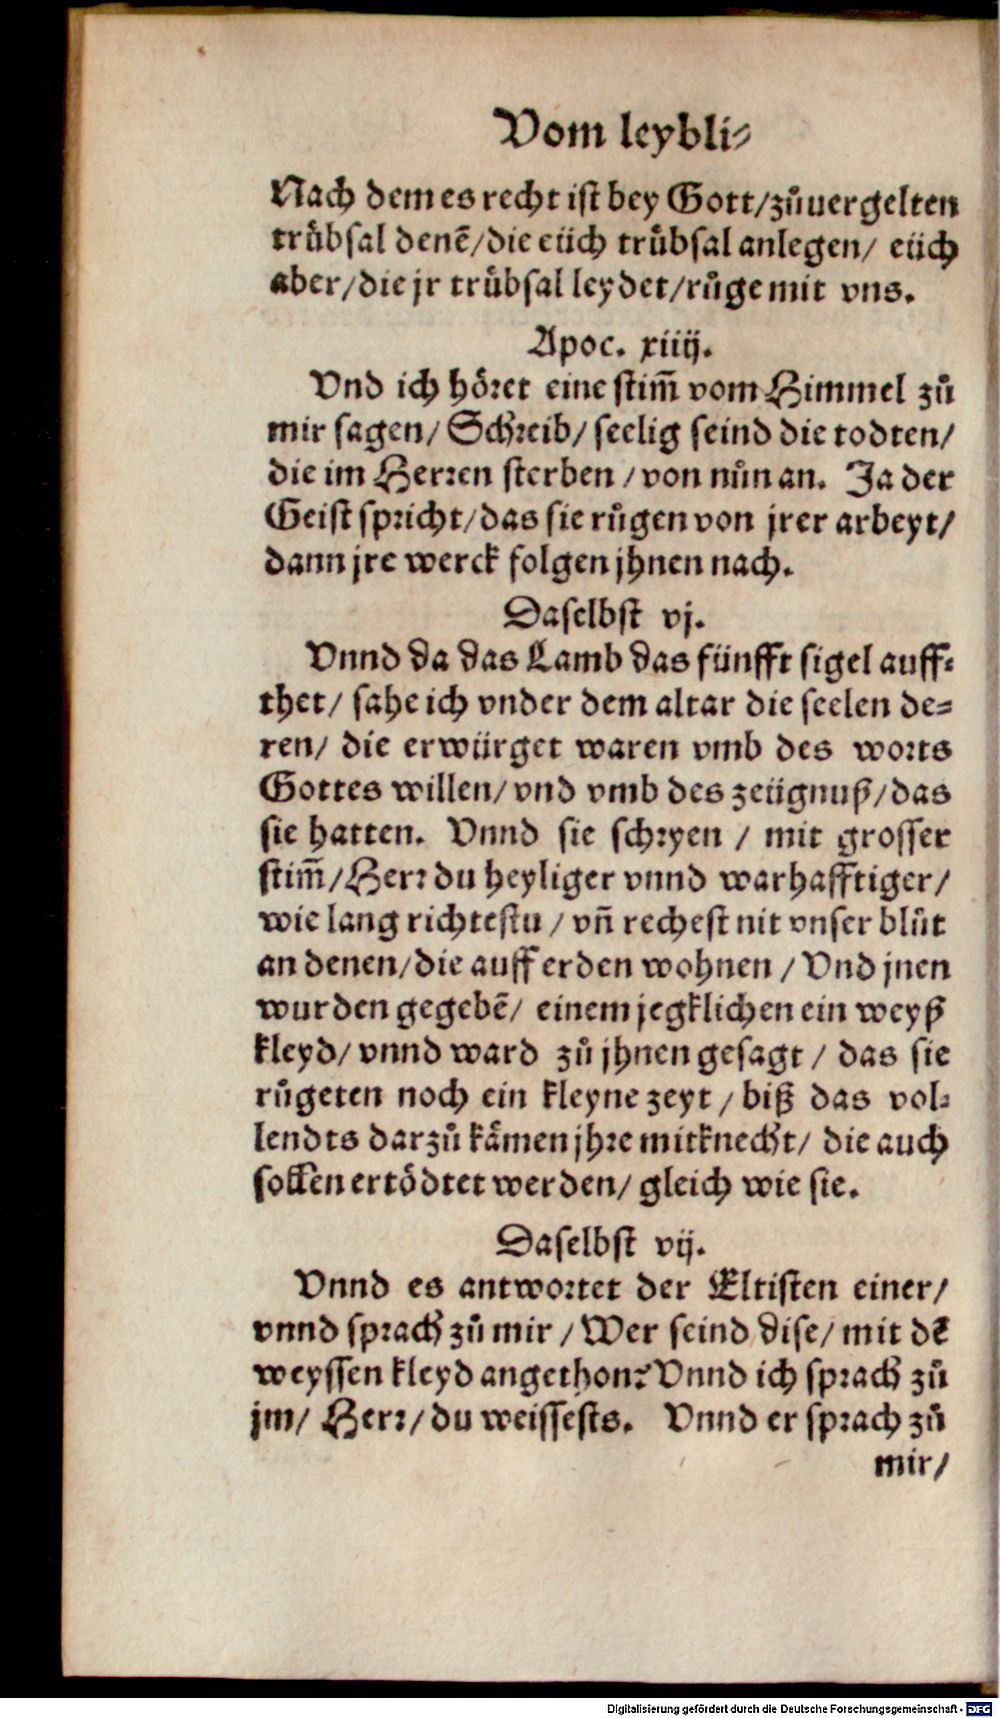 Vom leybli⸗
Nach dem es recht ist bey Gott/zůuergelten
trůbsal denē/die eüch trůbsal anlegen/ eüch
aber/die jr trůbsal leydet/růge mit vns.
Apoc. xiiij.
Vnd ich hoͤret eine stim̄ vom Himmel zů
mir sagen/ Schreib/ seelig seind die todten/
die im Herren sterben /von nůn an. Ja der
Geist spricht/das sie růgen von jrer arbeyt/
dann jre werck folgen jhnen nach.
Daselbst vj.
Vnnd da das Lamb das fünfft sigel auff⸗
thet/ sahe ich vnder dem altar die seelen de⸗
ren/ die erwürget waren vmb des worts
Gottes willen/vnd vmb des zeügnuß/das
sie hatten. Vnnd sie schryen / mit grosser
stim̄/Herr du heyliger vnnd warhafftiger/
wie lang richtestu / vn̄ rechest nit vnser blůt
an denen/die auff erden wohnen /Vnd jnen
wurden gegebē/ einem jegklichen ein weyß
kleyd/ vnnd ward zů jhnen gesagt / das sie
růgeten noch ein kleyne zeyt / biß das vol⸗
lendts darzů kaͤmen jhre mitknecht/ die auch
sollen ertoͤdtet werden/ gleich wie sie.
Daselbst vij.
Vnnd es antwortet der Eltisten einer/
vnnd sprach zů mir /Wer seind dise/ mit dē
weyssen kleyd angethon? Vnnd ich sprach zů
jm/ Herr/du weissests. Vnnd er sprach zů
mir/
Digitalisierung gefördert durch die Deutsche Forschungsgemeinschaft - DFG